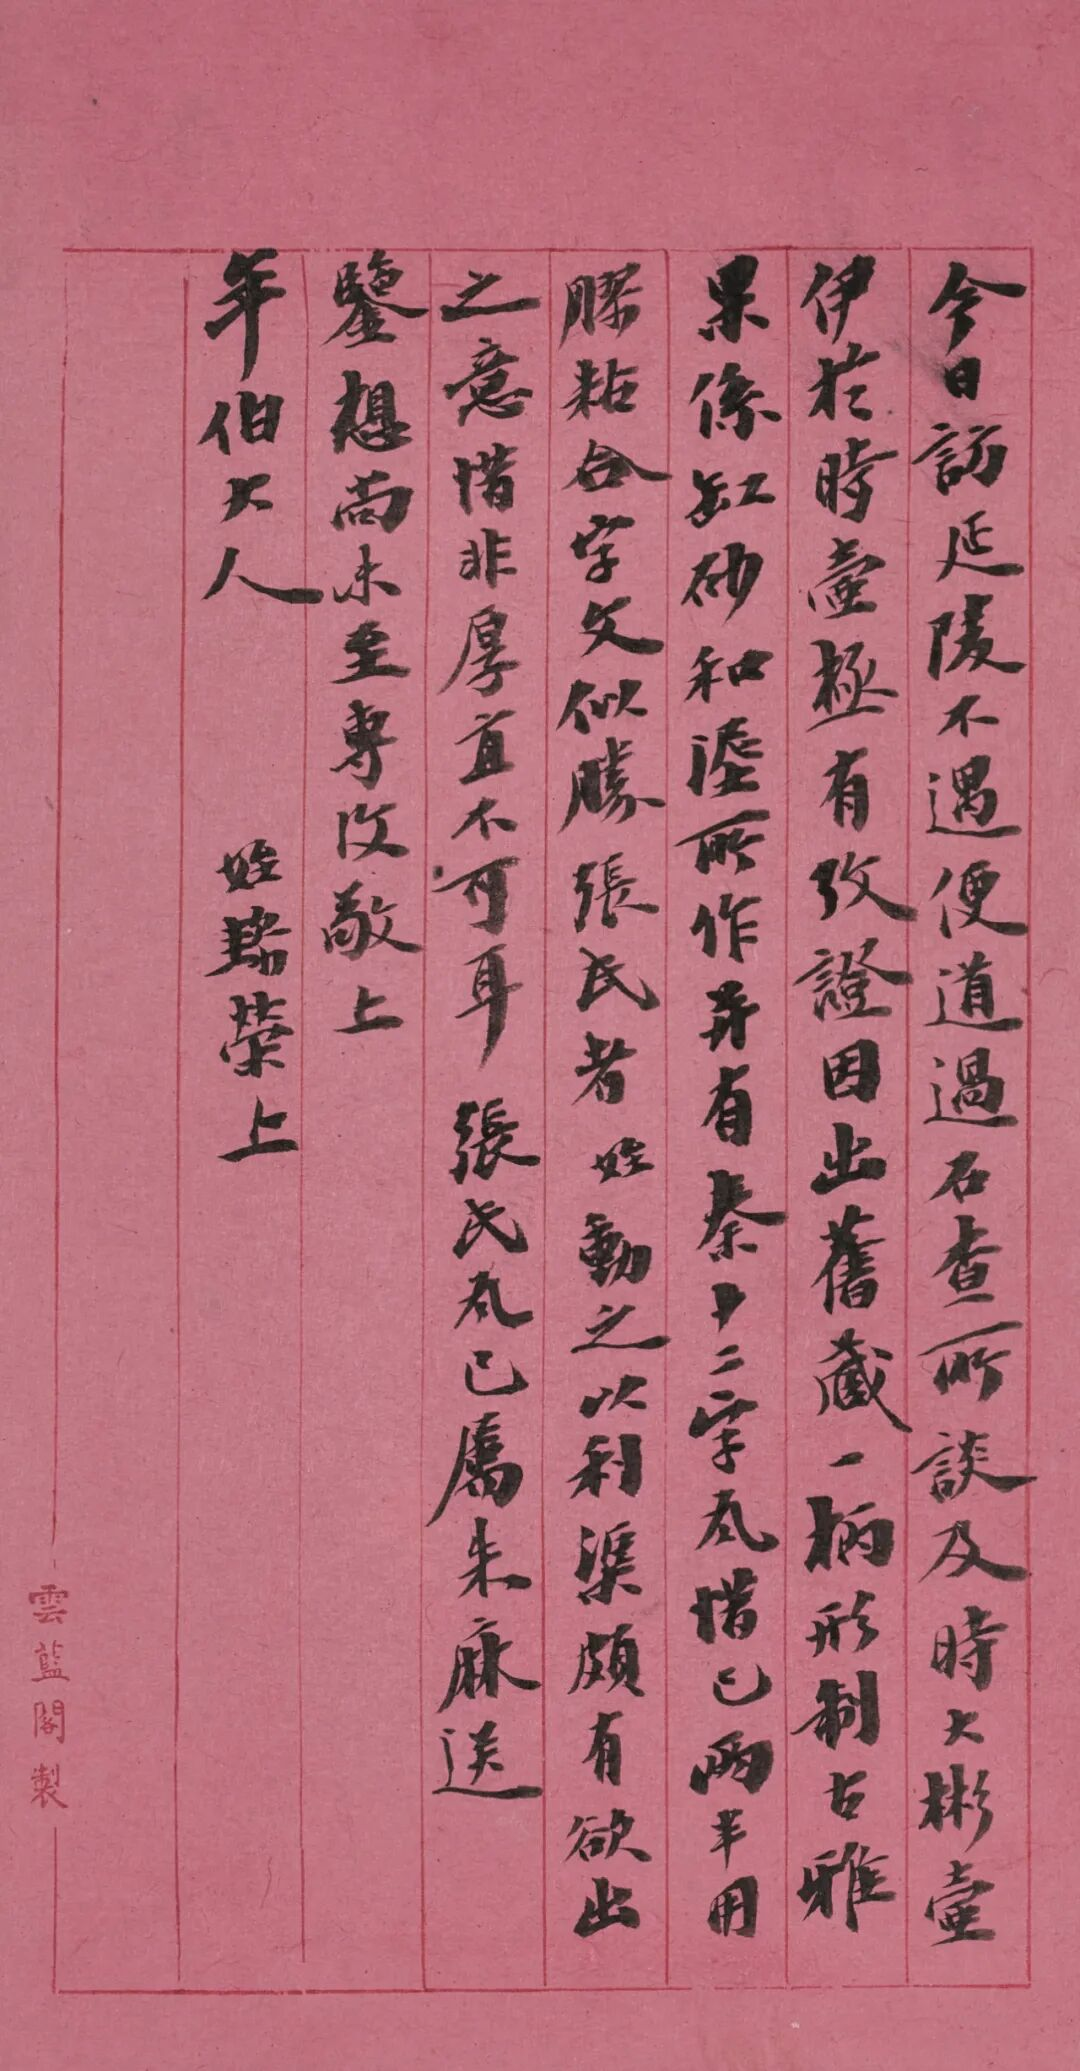 今日訪延陵不遇便道過石查所談及時大彬壺
伊於時壺極有攷證因出舊藏一柄形制古雅
果係缸砂和漆所作并有秦十二字瓦惜已兩半用
膠粘合字文似勝張氏者姪動之以利渠頗有欲出
之意惜非厚直不可耳張氏瓦已屬朱麻送
鑒想尚未至專此敬上
年伯大人
姪瑞榮上
雲藍閣製